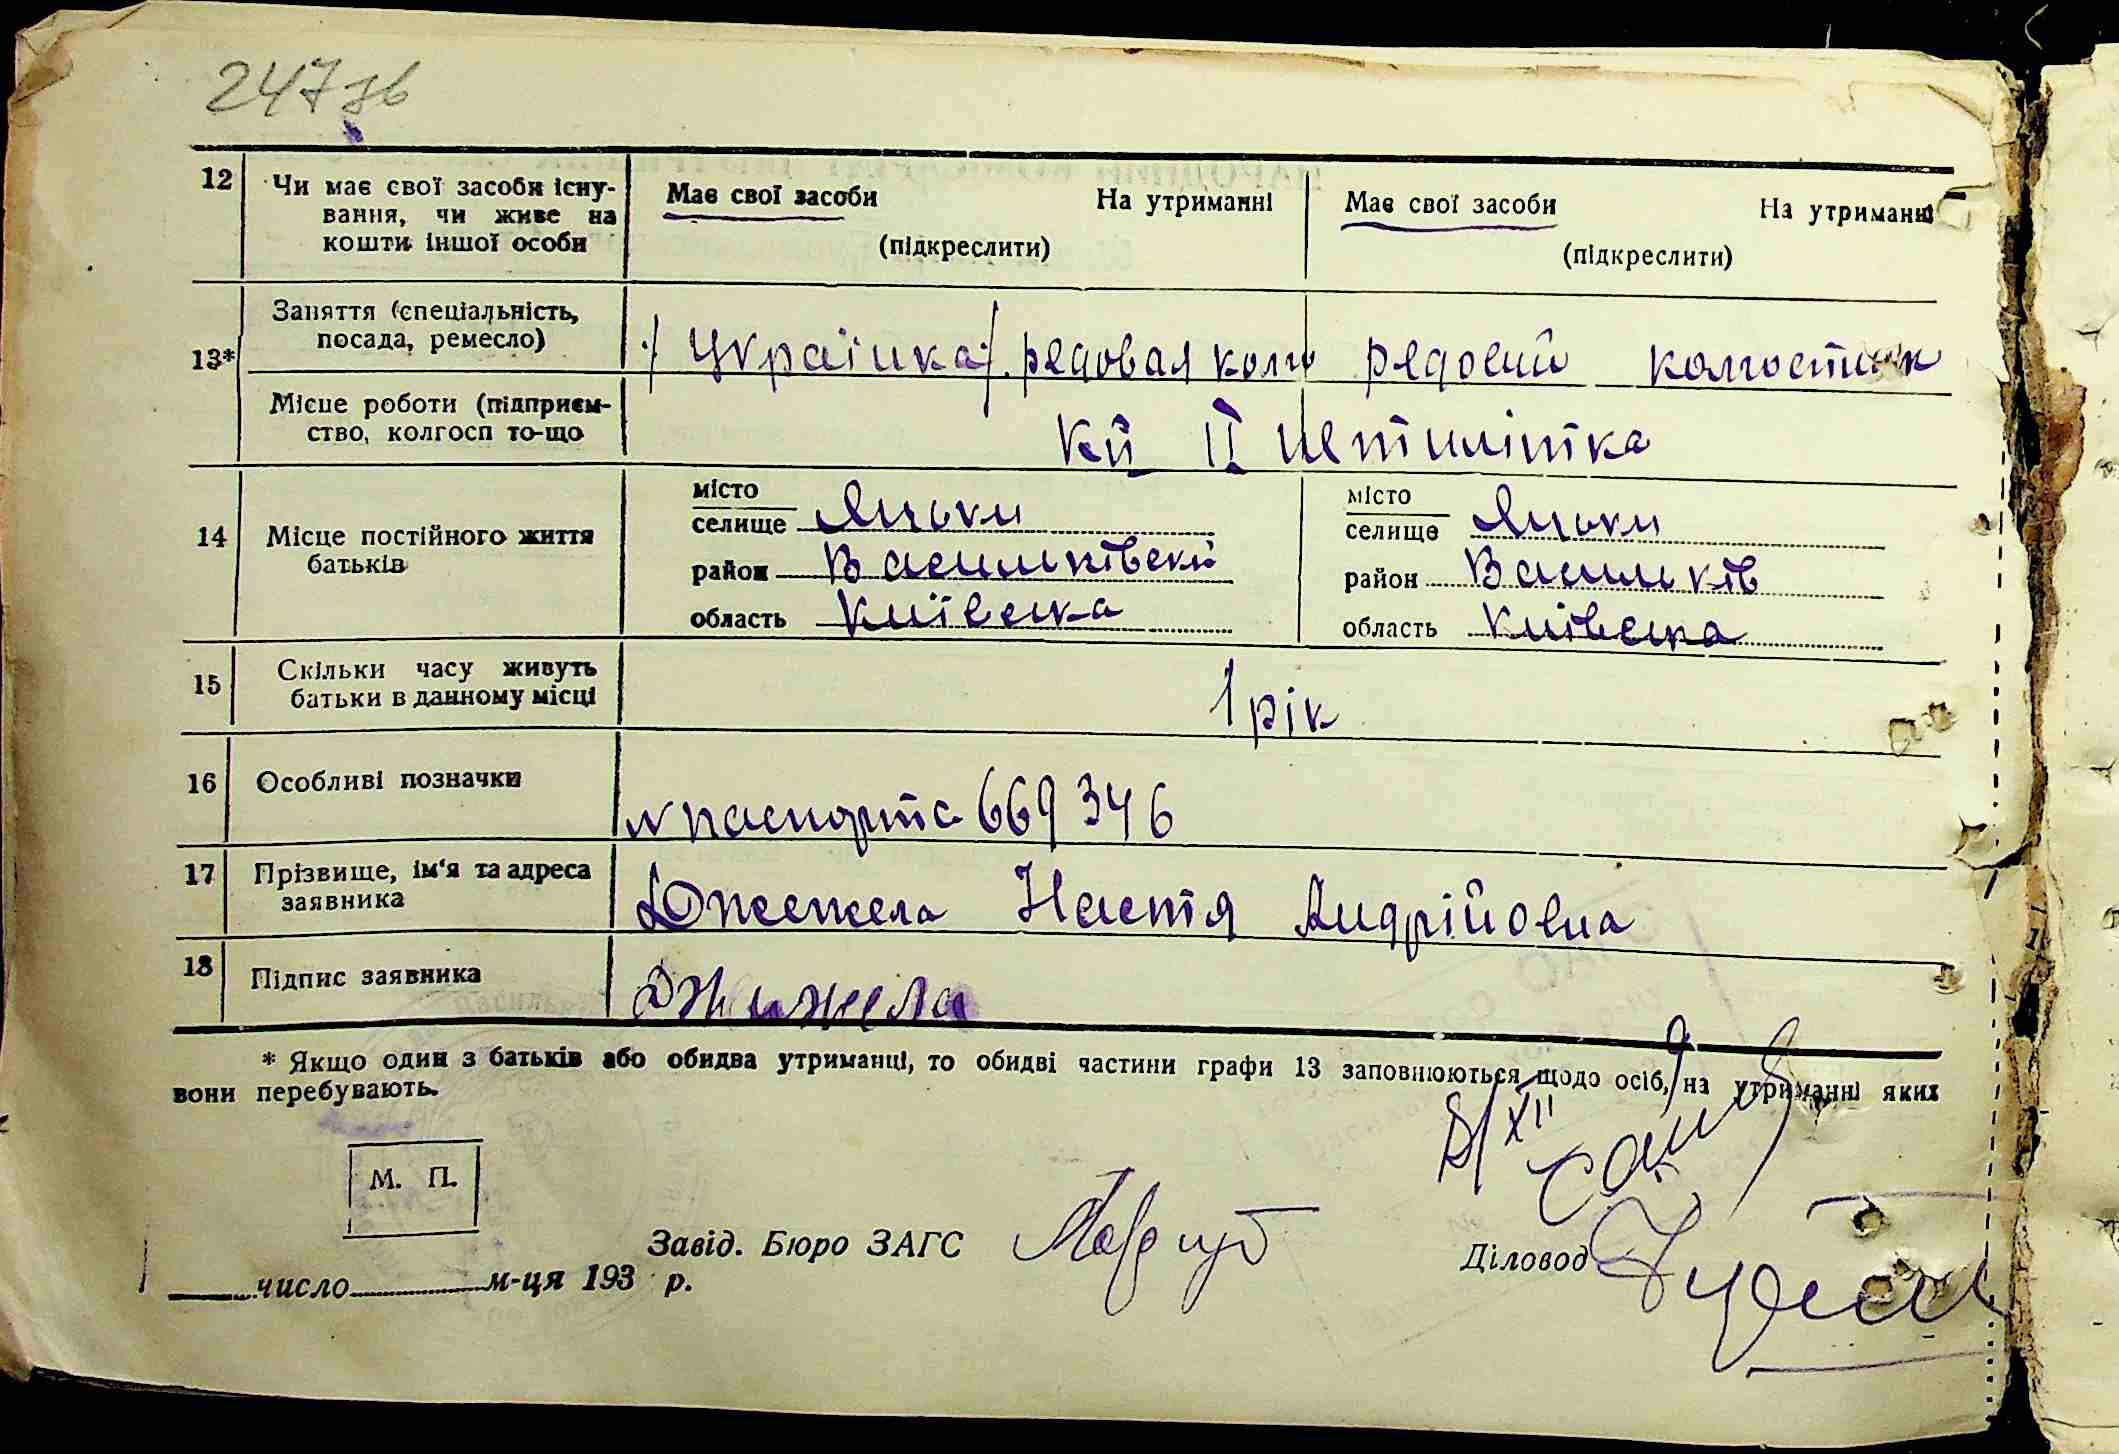 247 зв
12 Чи має свої засоби існу-
вання, чи живе на
кошти іншої особи
Має свої засоби На утриманні
(підкреслити)
Має свої засоби На утриманні
(підкреслити)
13* Заняття (спеціальність,
посада, ремесло)
/ Українка / рядовая колг рядовий колгостник
Місце роботи (підприєм-
ство, колгосп то-що
ІІ Пятилітка
14 Місце постійного життя
батьків
місто
селище Яцьки
район Васильківский
область Київська
місто
селище Яцьки
район Васильків
область Київська
15 Скільки часу живуть
батьки в данному місці
1 рік
16 Особливі позначки
N паспорта 669346
17 Прізвище, ім'я та адреса
заявника
Джежела Настя Андрійовна
18 Підпис заявника
Джижела
* Якщо один з батьків або обидва утриманці, то обидві частини графи 13 заповнюються щодо осіб, на утриманні яких
вони перебувають.
8/XII
М. П.
Завід. Бюро ЗАГС
Діловод
число м-ця 193 р.